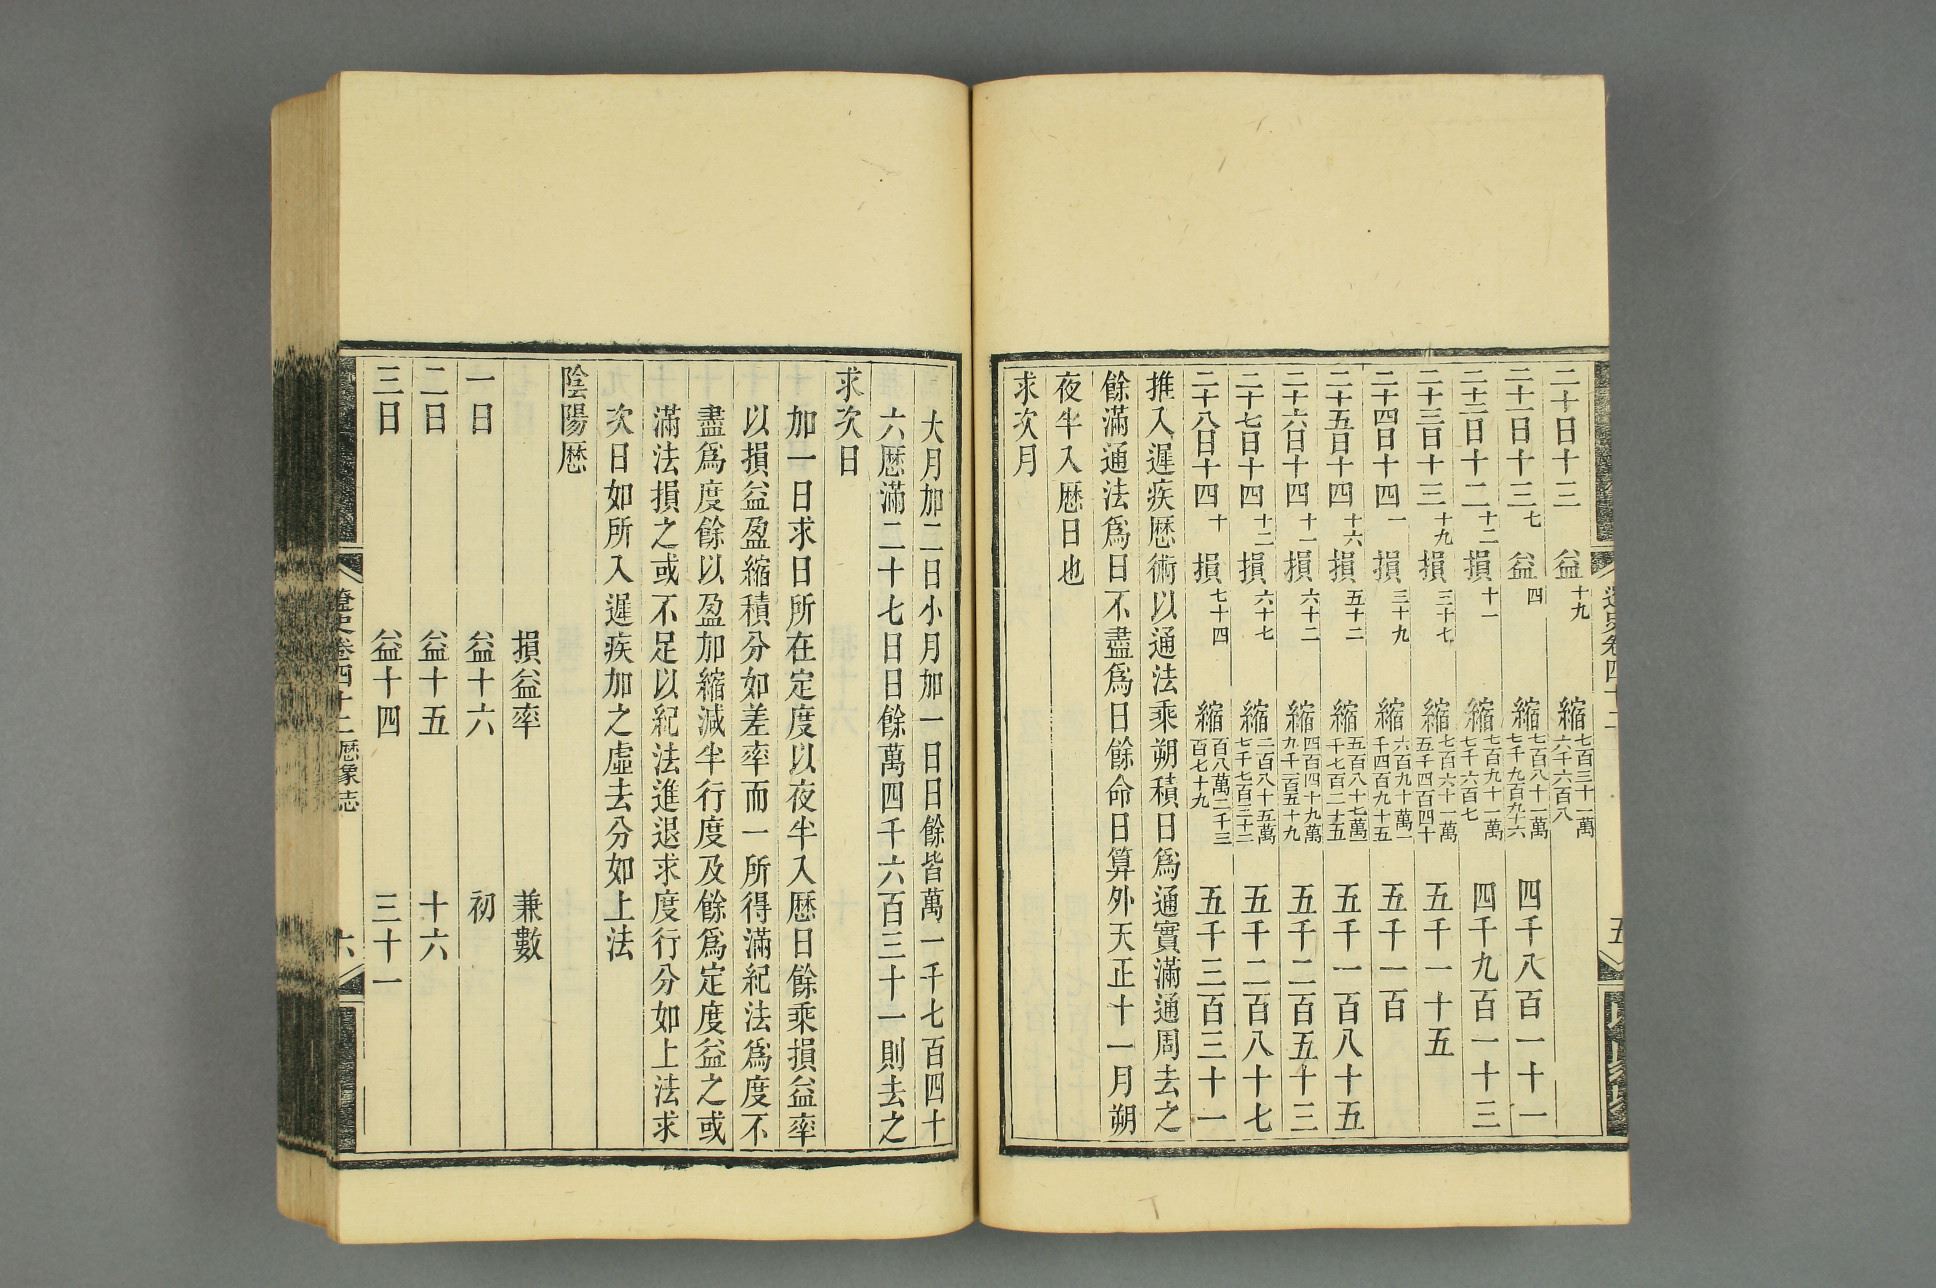 二十日十三 益十九 縮七百三十一萬六千六百八
二十一日十三七 益四 縮七百八十一萬七千九百九十六 四千八百一十一
二十二日十二十二 損十一 縮七百九十一萬七千六百七 四千九百一十三
二十三日十三十九 損三十七 縮七百六十一萬五千四百四十 五千一十五
二十四日十四一 損三十九 縮六百九十萬一千四百九十五 五千一百
二十五日十四十六 損五十二 縮五百八十七萬二千七百二十五 五千一百八十五
二十六日十四十一 損六十二 縮四百四十九萬九千一百五十九 五千二百五十三
二十七日十四十二 損六十七 縮二百八十五萬七千七百三十二 五千二百八十七
二十八日十四十 損七十四 縮百八萬二千三百七十九 五千三百三十一
推入遲疾厯術以通法乘朔積日爲通實滿通周去之
餘滿通法爲日不盡爲日餘命日算外天正十一月朔
夜半入厯日也
求次月
大月加二日小月加一日日餘皆萬一千七百四十
六厯滿二十七日日餘萬四千六百三十一則去之
求次日
加一日求日所在定度以夜半入厯日餘乘損益率
以損益盈縮積分如差率而一所得滿紀法爲度不
盡爲度餘以盈加縮減半行度及餘爲定度益之或
滿法損之或不足以紀法進退求度行分如上法求
次日如所入遲疾加之虛去分如上法
陰陽厯
損益率 兼數
一日 益十六 初
二日 益十五 十六
三日 益十四 三十一
遼史卷四十二 厯象志 六